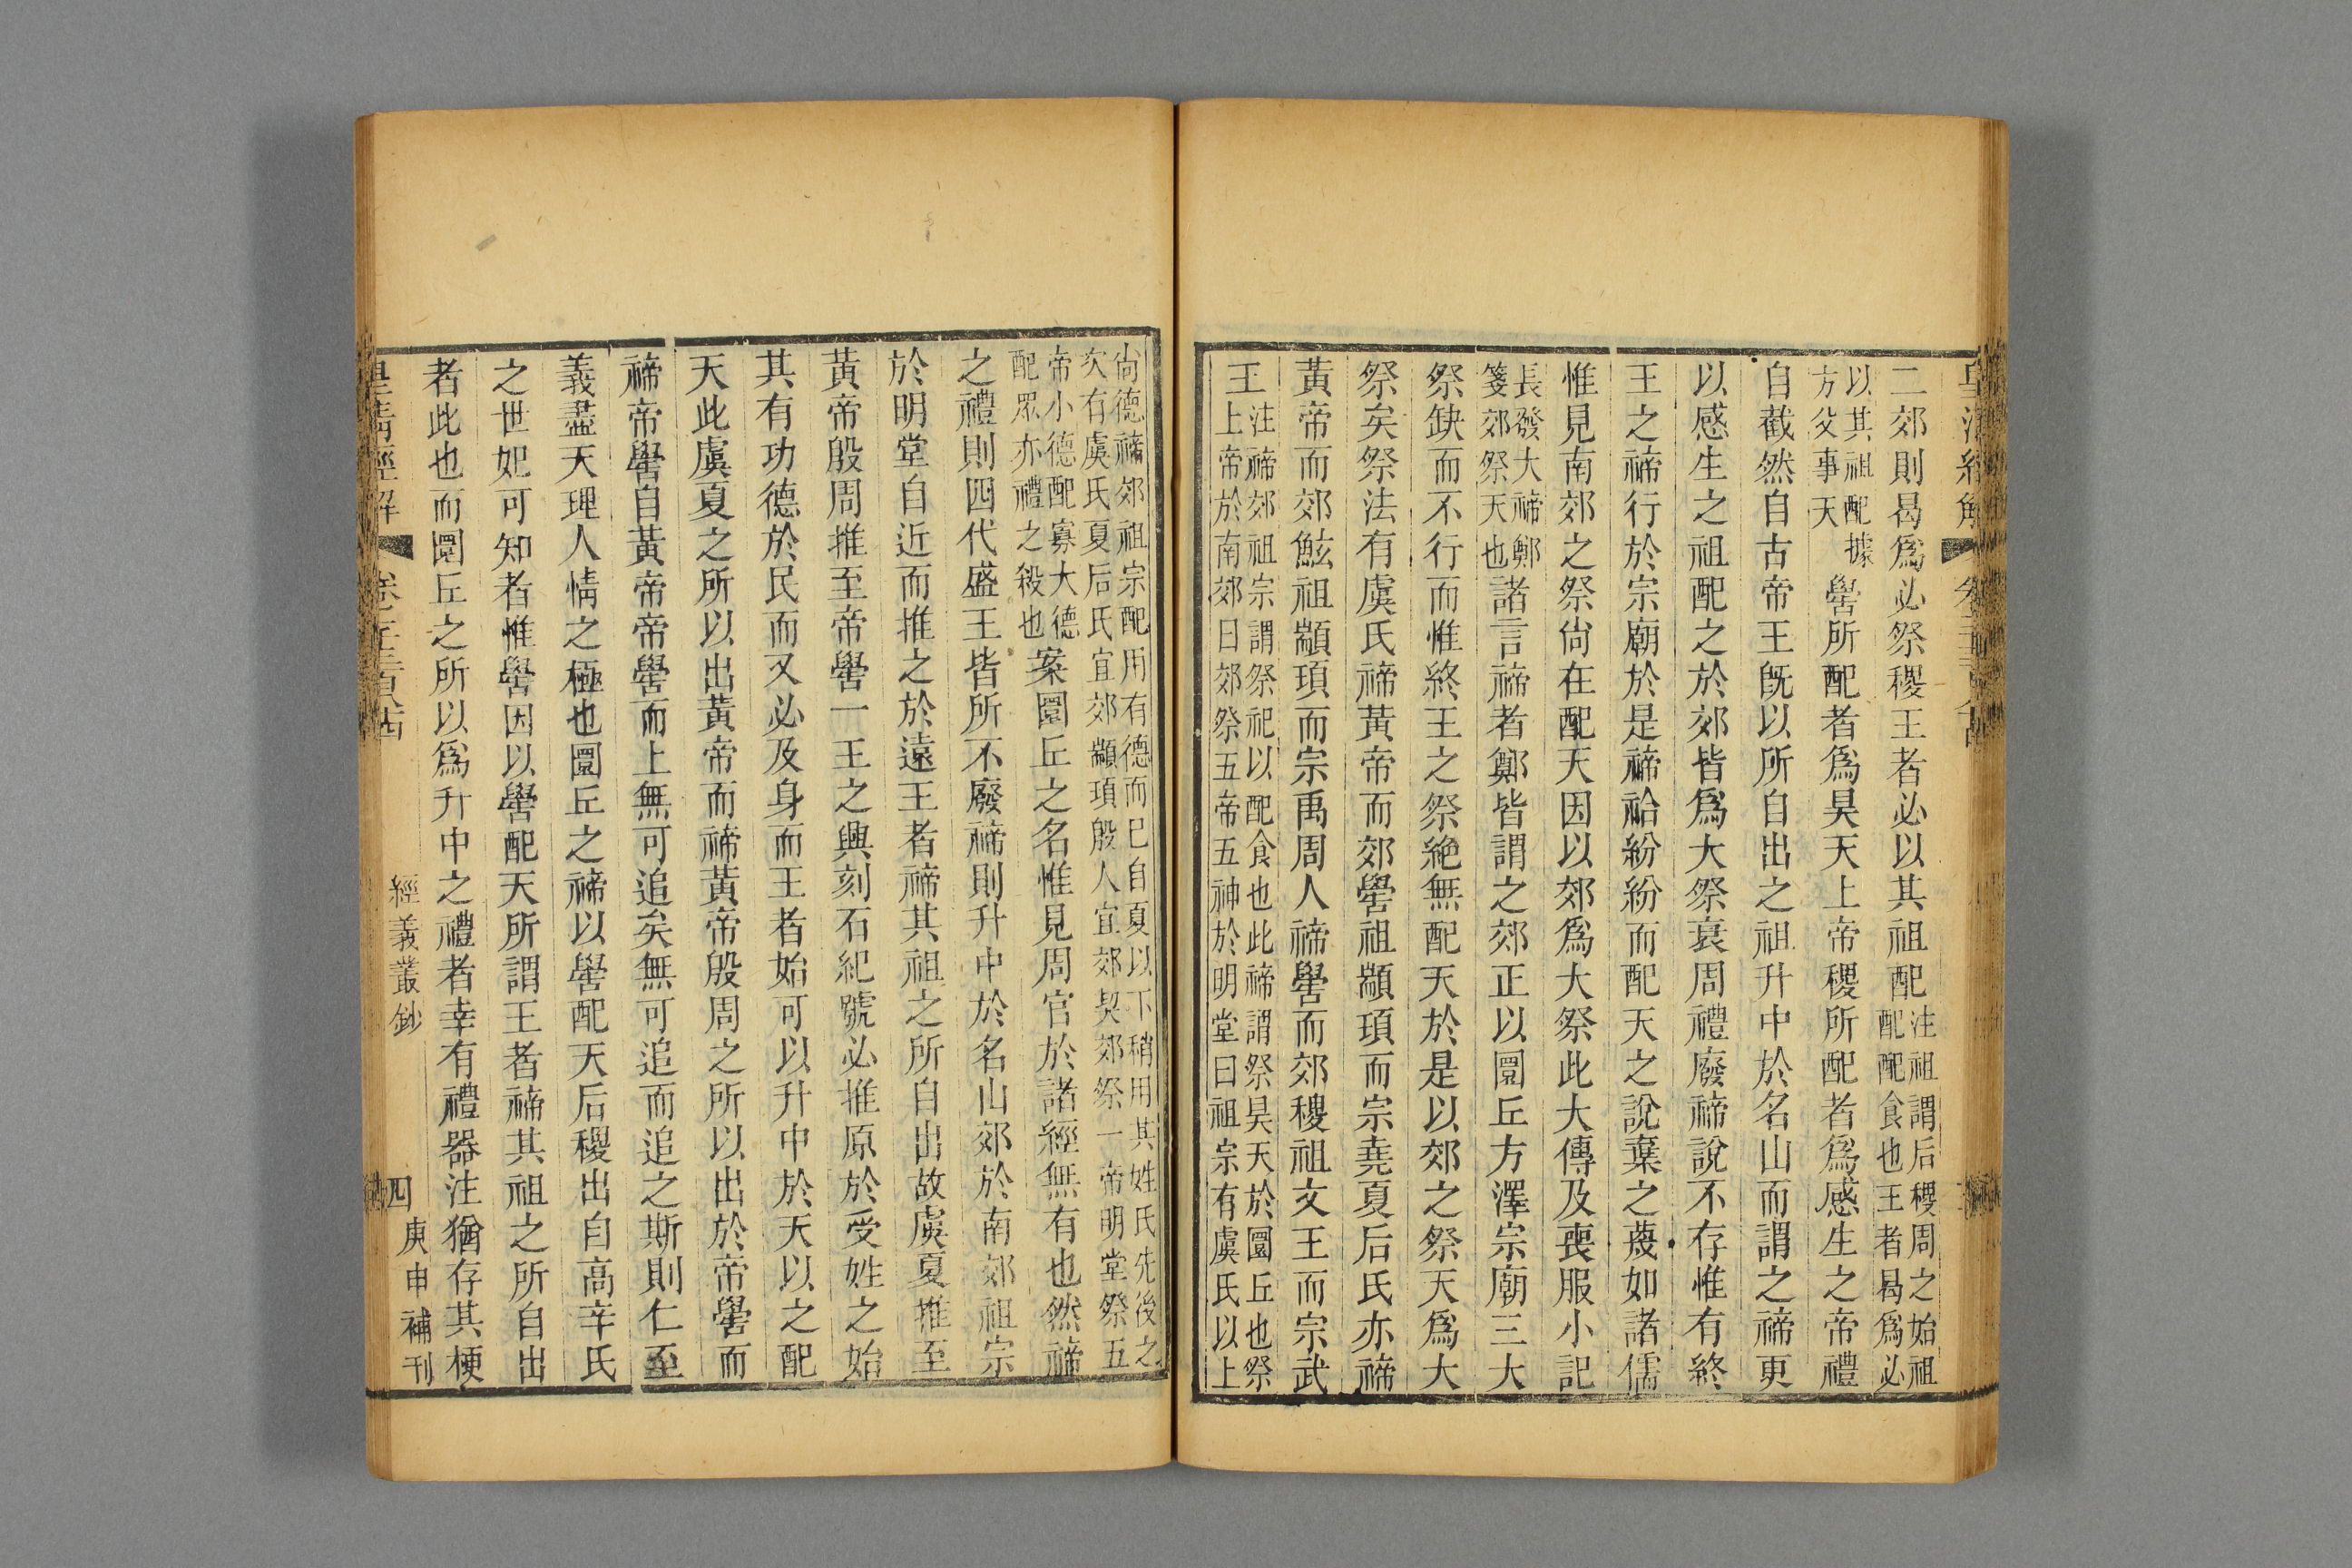 二郊則曷爲必祭稷王者必以其祖配注祖謂后稷周之始祖配配食也王者曷爲必
以其祖配據方父事天嚳所配者爲昊天上帝稷所配者爲感生之帝禮
自截然自古帝王旣以所自出之祖升中於名山而謂之禘更
以感生之祖配之於郊皆爲大祭衰周禮廢禘說不存惟有終
王之禘行於宗廟於是禘祫紛紛而配天之說棄之蔑如諸儒
惟見南郊之祭尙在配天因以郊爲大祭此大傳及喪服小記
長發大禘鄭箋郊祭天也諸言禘者鄭皆謂之郊正以圜丘方澤宗廟三大
祭缺而不行而惟終王之祭絶無配天於是以郊之祭天爲大
祭矣祭法有虞氏禘黃帝而郊嚳祖顓頊而宗堯夏后氏亦禘
黃帝而郊鮌祖顓頊而宗禹周人禘嚳而郊稷祖文王而宗武
王注禘郊祖宗謂祭祀以配食也此禘謂祭昊天於圜丘也祭上帝於南郊曰郊祭五帝五神於明堂曰祖宗有虞氏以上
尙德禘郊祖宗配用有德而已自夏以下稍用其姓氏先後之次有虞氏夏后氏宜郊顓頊殷人宜郊契郊祭一帝明堂祭五
帝小德配寡大德配眾亦禮之殺也案圜丘之名惟見周官於諸經無有也然禘
之禮則四代盛王皆所不廢禘則升中於名山郊於南郊祖宗
於明堂自近而推之於遠王者禘其祖之所自出故虞夏推至
黃帝殷周推至帝嚳一王之興刻石紀號必推原於受姓之始
其有功德於民而又必及身而王者始可以升中於天以之配
天此虞夏之所以出黃帝而禘黃帝殷周之所以出於帝嚳而
禘帝嚳自黃帝帝嚳而上無可追矣無可追而追之斯則仁至
義盡天理人情之極也圜丘之禘以嚳配天后稷出自高辛氏
之世妃可知者惟嚳因以嚳配天所謂王者禘其祖之所自出
者此也而圜丘之所以爲升中之禮者幸有禮器注猶存其梗
皇淸經解
經義叢鈔
四
庚申補刊